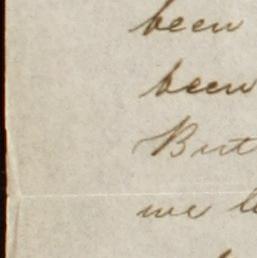 been
been
But
we